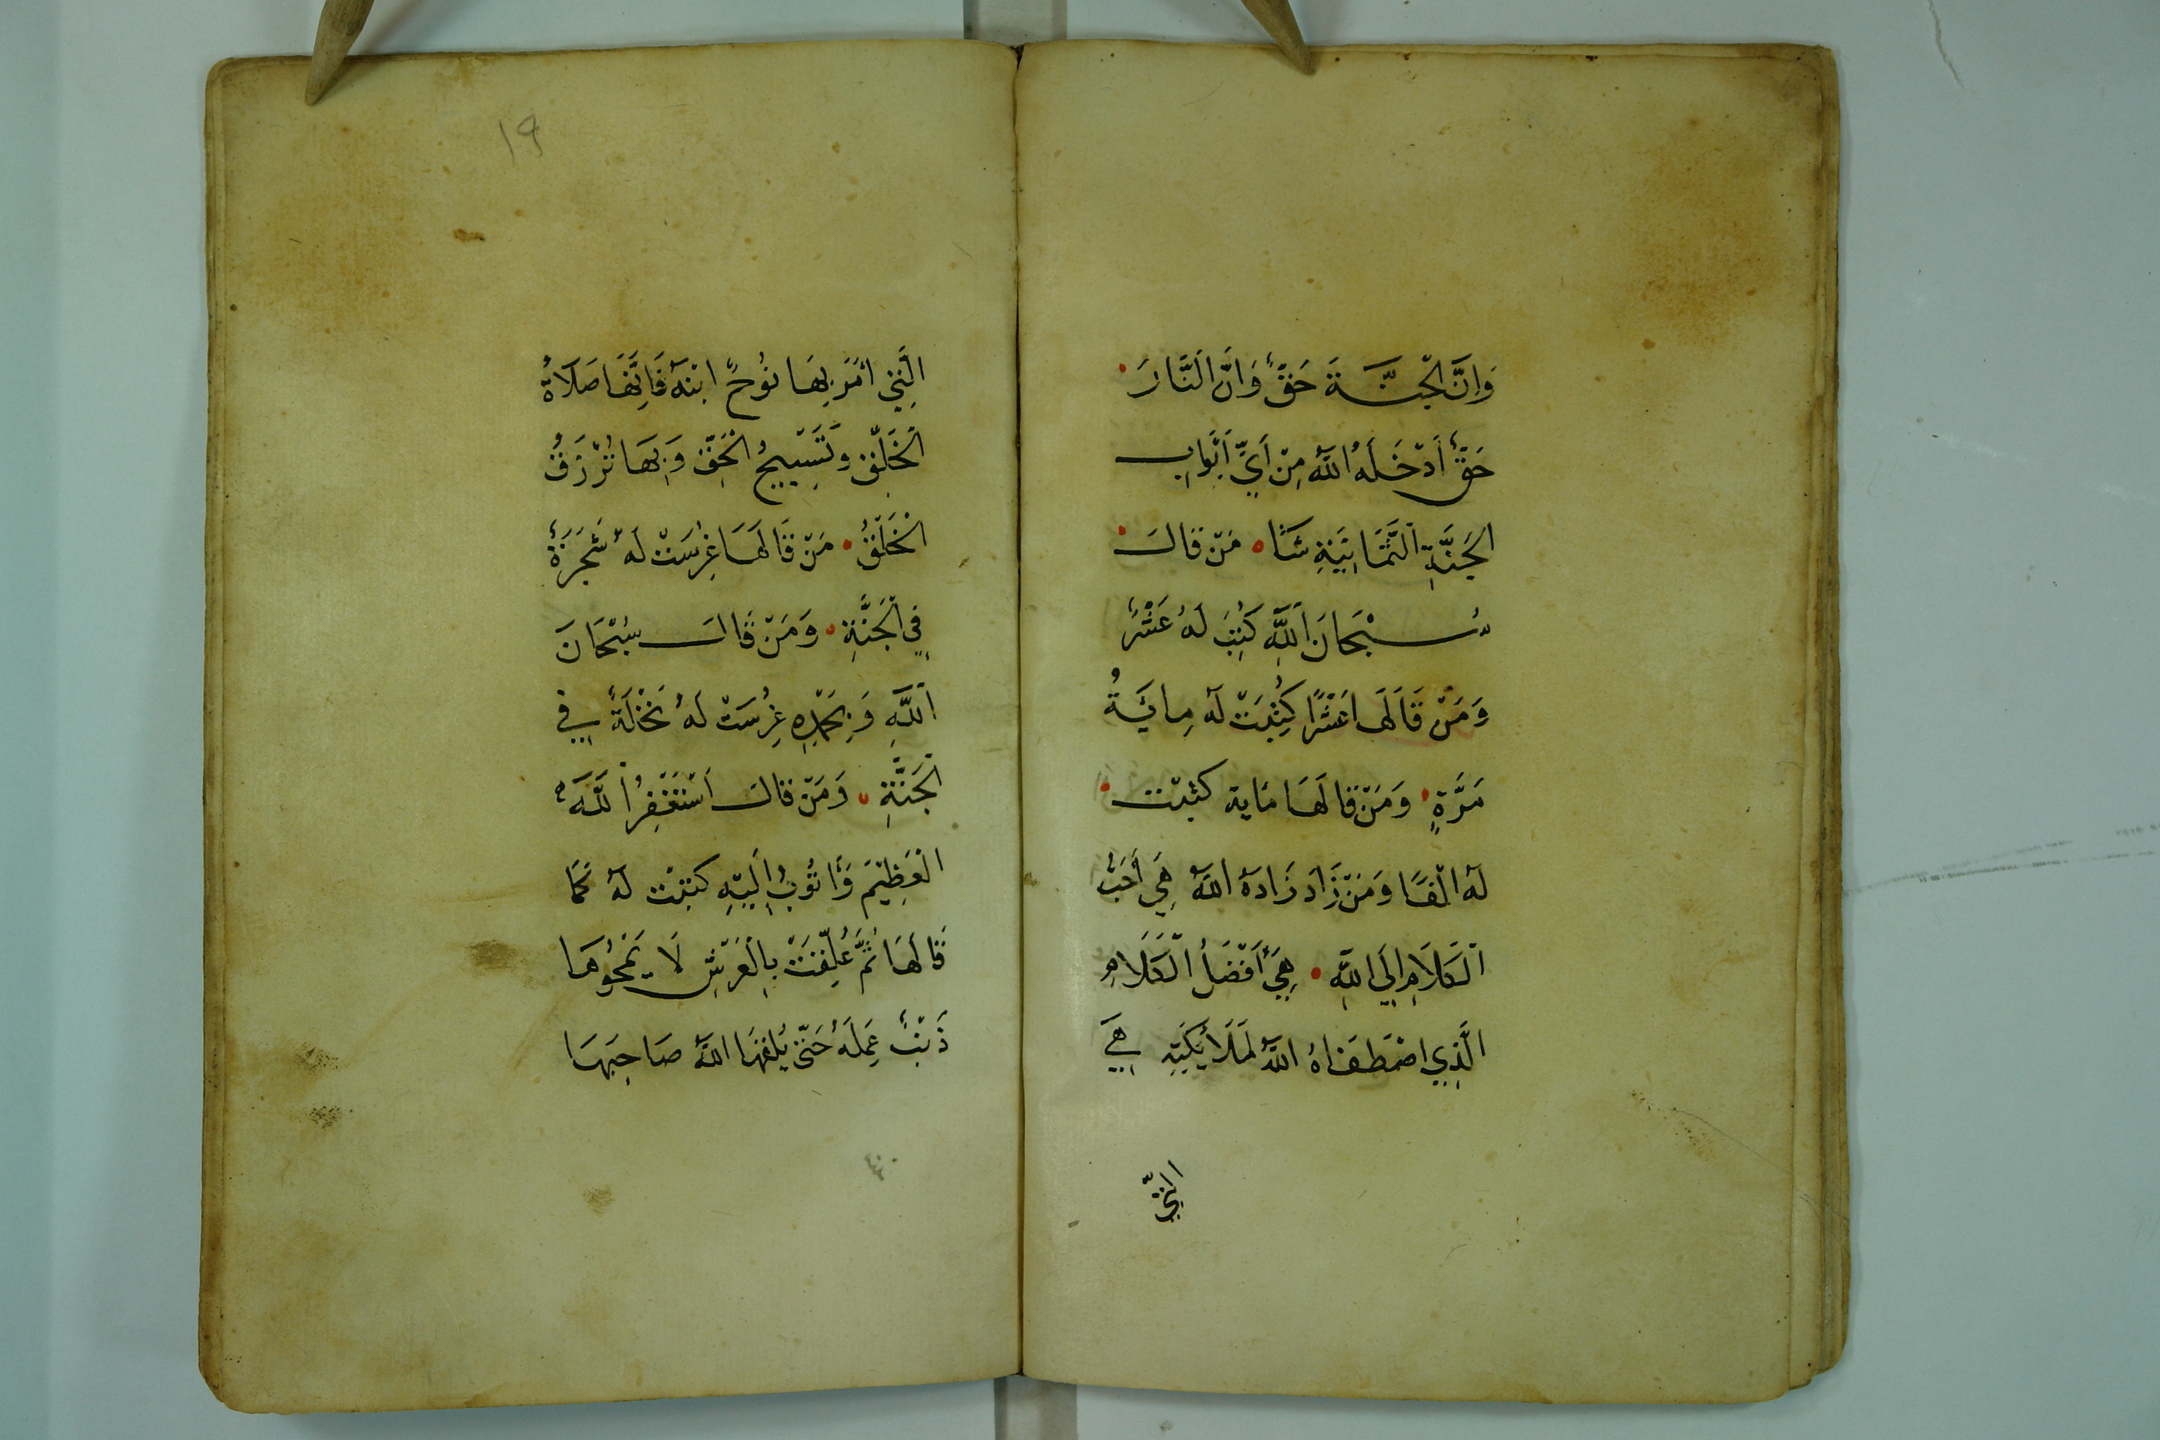 وَإِنَّ الْجَنَّةَ حَقٌّ وَأَنَّ النَّارَ
حَقٌّ أَدْخَلَهُ اللَّهُ مِنْ أَيِّ أَبْوَابِ
الْجَنَّةِ الثَّمَانِيَةِ شَآءَ مَنْ قَالَ
سُبْحَانَ اللَّهِ كُتِبَ لَهُ عَشْرًا
وَمَنْ قَالَهَا عَشْرًا كُتِبَتْ لَهُ مِايَةُ
مَرَّةٍ وَمَنْ قَالَهَا مَاية كتبت
لَهُ الْفًا وَمَنْ زَادَ زَادَهُ اللَّهُ هِيَ أَحَبُّ
الْكَلَامِ إِلَى اللَّهِ هِيَ أَفْضَلُ الْكَلَامِ
الَّذِي اصْطَفَاهُ اللَّهُ لِمَلَائِكَتِهِ هِيَ
الَّتِي
١٩
الَّتِي أَمَرَ بِهَا نُوحٌ ابْنَهُ فَإِنَّهَا صَلَاةُ
الْخَلْقِ وَتَسْبِيحُ الْخَقِ وَبِهَا تُرْزَقُ
الْخَلْقُ مَنْ قَالَهَا غُرِسَتْ لَهُ شَجَرَةٌ
فِي الْجَنَّةِ وَمَنْ قَالَ سُبْحَانَ
اللَّهِ وَبِحَمْدِهِ غُرِسَتْ لَهُ نَخْلَةٌ فِي
الْجَنَّةِ وَمَنْ قَالَ أَسْتَغْفِرُ اللَّهَ
الْعَظِيمَ وَأَتُوبُ إِلَيْهِ كتبت لَهُ كَمَا
قَالَهَا ثُمَّ عُلِّقَتْ بِالْعَرْشِ لَا يَمْحُوهَا
ذَنْبٌ عَمِلَهُ حَتَّى يُلْقَهَا اللَّهُ صَاحِبَهَا